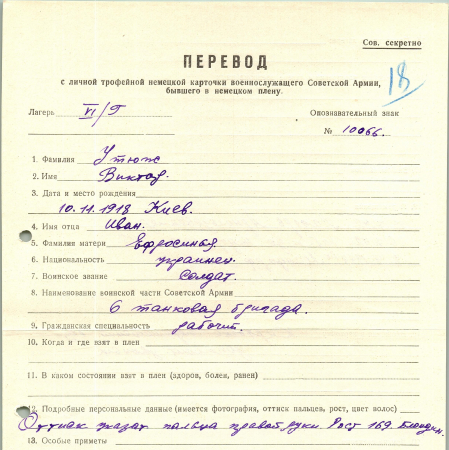 Сов. секретно
18
ПЕРЕВОД
с личной трофейной немецкой карточки военнослужащего Советской Армии,
бывшего в немецком плену.
Лагерь VI/Г
Опознавательный знак
№ 10066.
1. Фамилия Утюж
2. Имя Виктор.
3. Дата и место рождения
10.11.1918 Киев.
4. Имя отца Иван.
5. Фамилия матери Ефросинья
6. Национальность украинец.
7. Воинское звание солдат.
8. Наименование воинской части Советской Армии
6 танковая бригада.
9. Гражданская специальность рабочий.
10. Когда и где взят в плен
11. В каком состоянии взят в плен (здоров, болен, ранен)
12. Подробные персональные данные (имеется фотография, оттиск пальцев, рост, цвет волос)
Оттиск указат пальца правой руки. Рост 169. Блондин.
13. Особые приметы